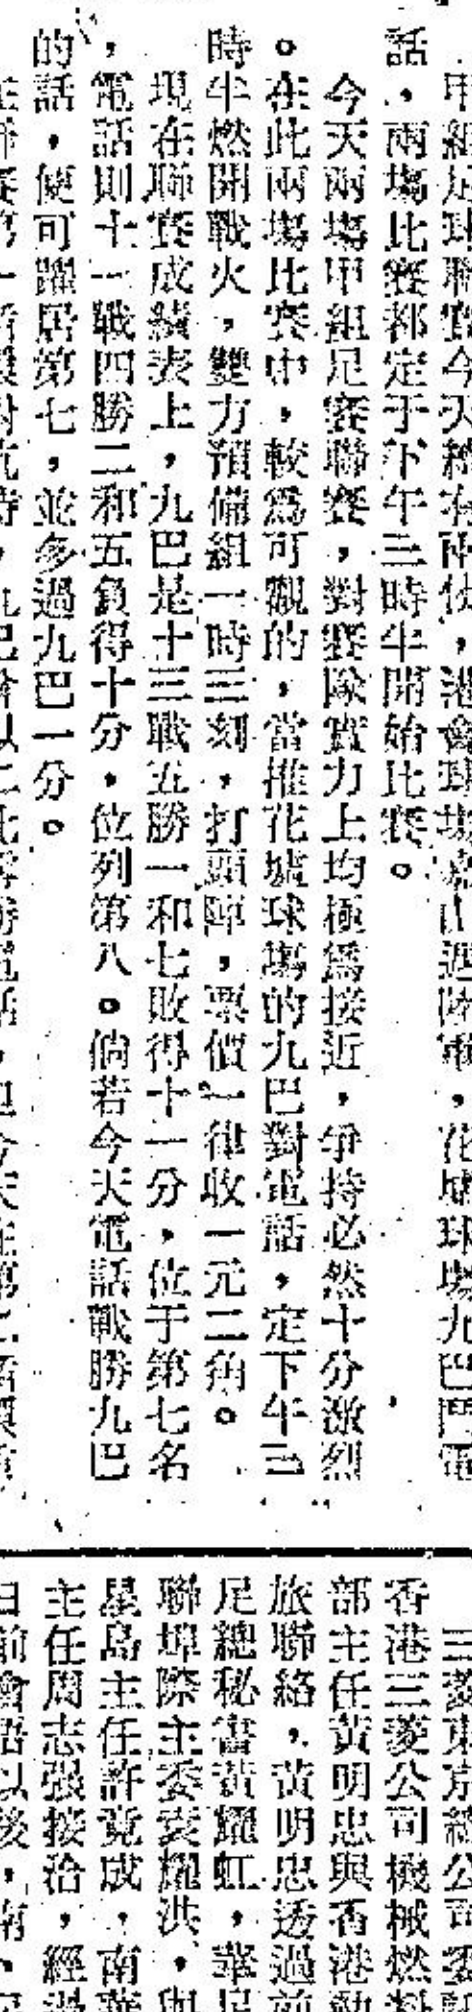 甲組足球聯賽今天
話，兩場比賽都定于下午三時半開始比賽。
今天兩場甲組足賽聯賽，對賽隊實力上均極爲接近，爭持必然十分激烈
。在此兩場比賽中，較爲可觀的，當推花墟球塲的九巴對電話，定下午三
時半燃開戰火，雙方預備組一時三刻，打頭陣，票價一律收一元二角。
現在聯賽成績表上，九巴是十三戰五勝一和七敗得十一分，位于第七名
，電話則十一戰四勝二和五負得十分，位列第八。倘若今天電話戰勝九巴
的話，便可躍居第七，並多過九巴一分。
三菱東京總公司委
香港三菱公司機械燃料
部主任黃明忠與香港
旅聯絡，黃明忠透過前
足總秘書黃耀虹，華足
聯埠際主委袁耀洪，與
星島主任許竟成，南華
主任周志强接洽，經過